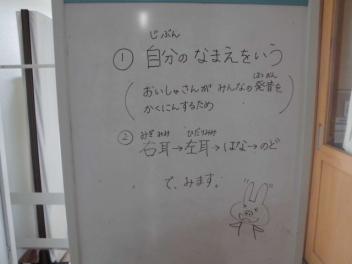 じぶん
① 自分のなまえをいう
はつおん
(おいしゃさんが みんなの発音を
かくにんするため)
みぎみみ ひだりみみ
② 右耳→左耳→はな→のど
で、みます。